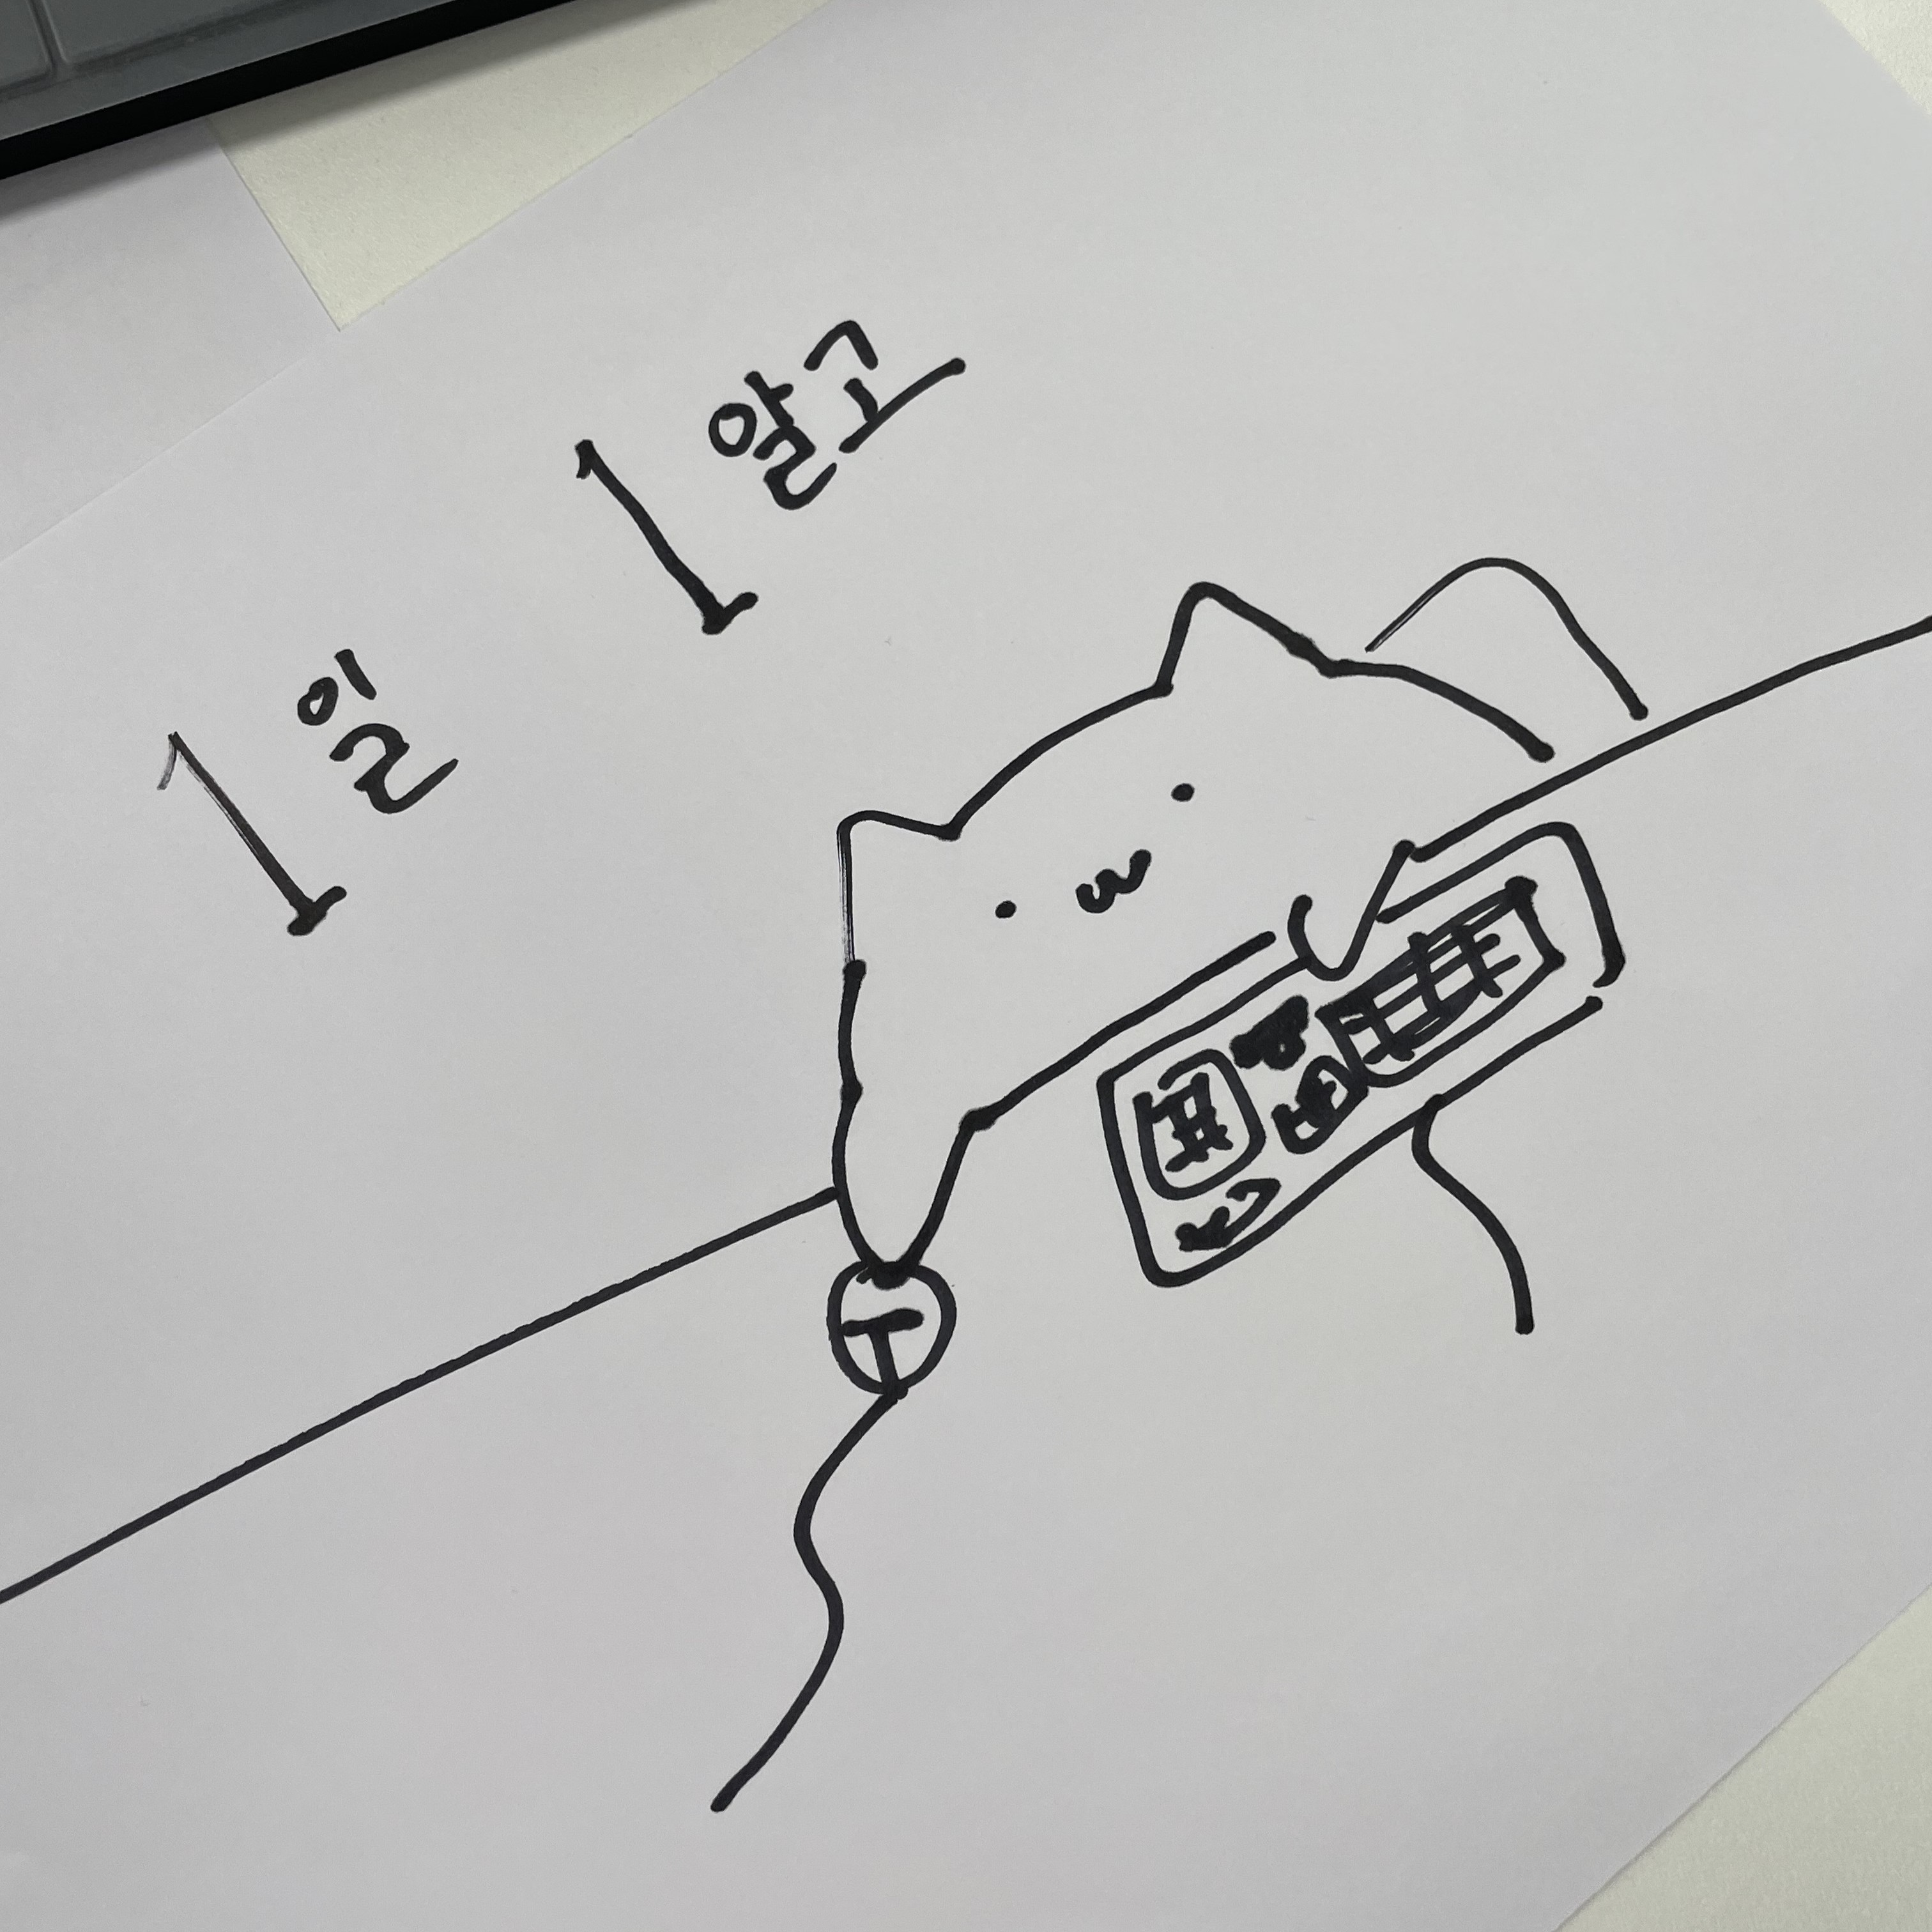 1일 1알고
T